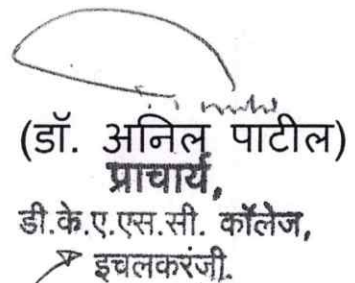 (डॉ. अनिल पाटील)
प्राचार्य,
डी.के.ए.एस.सी. कॉलेज,
इचलकरंजी.